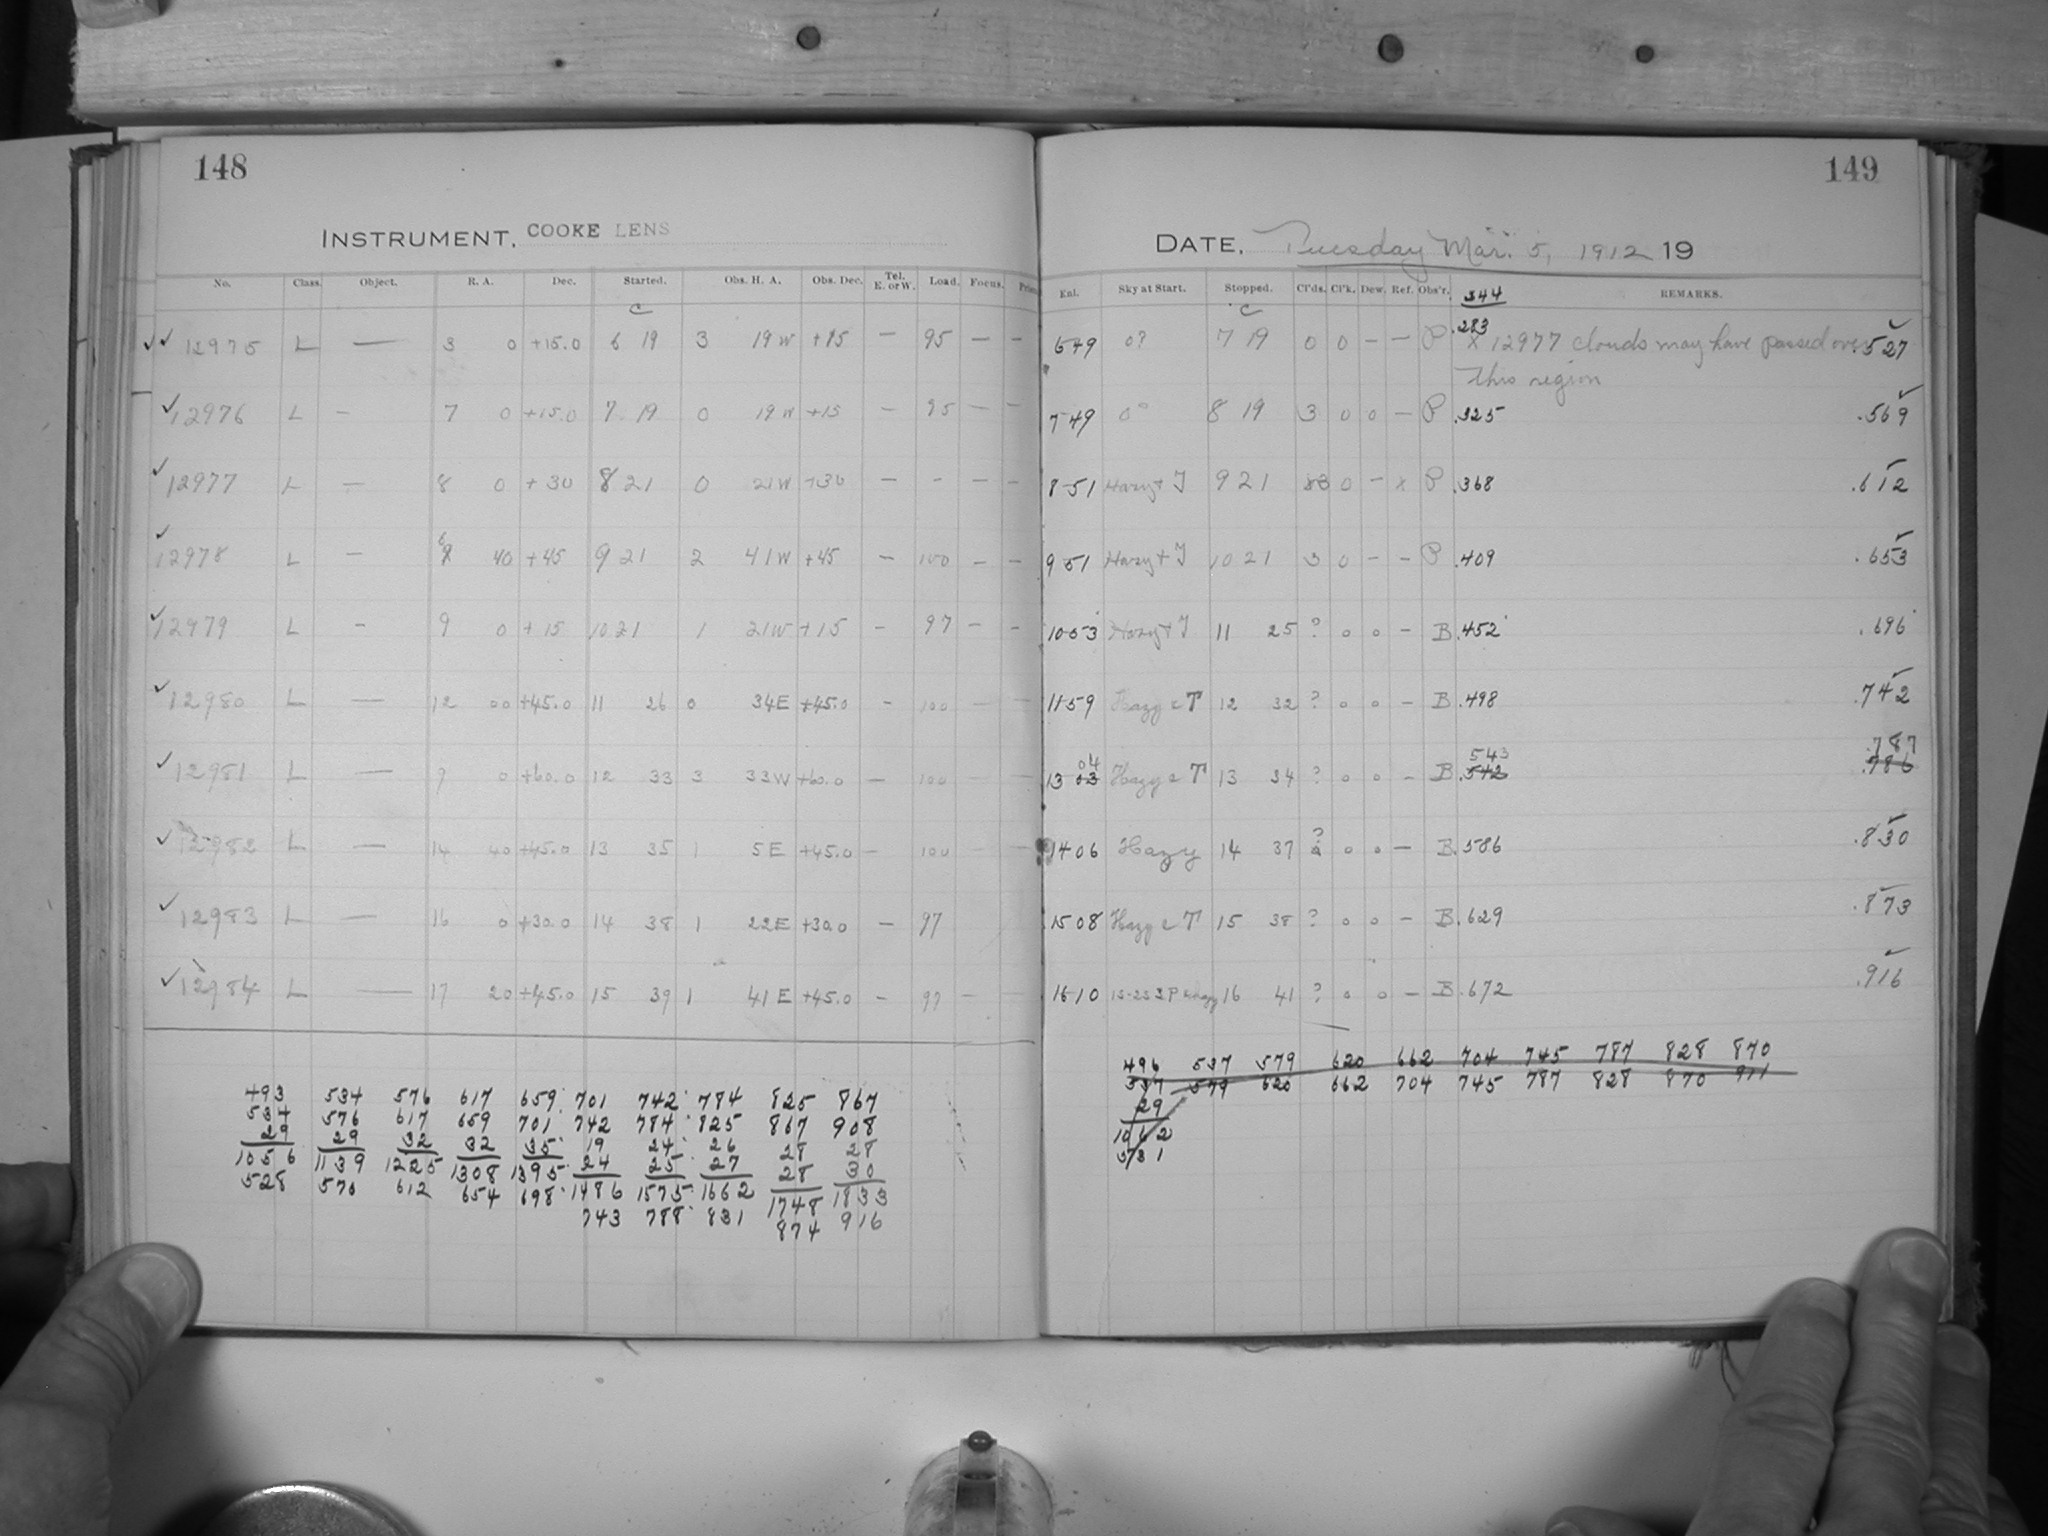 148
INSTRUMENT. COOKE LENS
No. Class. Object. R. A. Dec. Started. Obs. H. A. Obs. Dec. Tel. E. or W. Load. Focus.
C
12975 L — 3 0 +15.0 6 19 3 19 W +15 — 95 — —
12976 L — 7 0 +15.0 7 19 0 19 W +15 — 95 — —
12977 L — 8 0 +30 8 21 0 21 W +30 — - — —
12978 L — 40 +45 9 21 2 41 W +45 — 100 — —
12979 L - 9 0 +15 10 21 1 21 W +15 - 97 — —
12980 L — 12 00 +45.0 11 26 0 34 E +45.0 - 100 — —
12981 L — 9 0 +60.0 12 33 3 33 W +60.0 — 100
12982 L — 14 40 +45.0 13 35 1 5 E +45.0 — 100 — —
12983 L — 16 0 +30.0 14 38 1 22 E +30.0 — 97
12984 L — 17 20 +45.0 15 39 1 41 E +45.0 - 97 — —
493 534 576 617 659 701 742 784 825 867
534 576 617 659 701 742 784 825 867 908
29 29 32 32 35 19 24 26 28 28
24 25 27 28 30
1056 1139 1225 1308 1395 1486 1575 1662 1748 1833
528 570 612 654 698 743 788 831 874 916
149
DATE. Tuesday Mar. 5, 1912 19
Sky at Start. Stopped. Cl'ds. Cl'k. Dew. Ref. Obs'r. REMARKS.
C
344
.283
6 49 0? 7 19 0 0 — — P X 12977 clouds may have passed over .527
this region
7 49 0° 8 19 3 0 0 — P .325 .569
8 51 Hazy + T 9 21 3 0 — x P .368 .612
9 51 Hazy + T 10 21 3 0 - - P .409 .653
10 53 Hazy + T 11 25 ? 0 0 — B .452 .696
11 59 Hazy c T 12 32 ? 0 0 - B .498 .742
04 543 .787
13 03 Hazy c T 13 34 ? 0 0 - B .542 .786
14 06 Hazy 14 37 ? 0 0 — B .586 .830
15 08 Hazy c T 15 38 ? 0 0 - B .629 .873
16 10 16 41 ? 0 0 — B .672 .916
496 537 579 620 662 704 745 787 828 870
537 579 620 662 704 745 787 828 870 911
29
1062
531